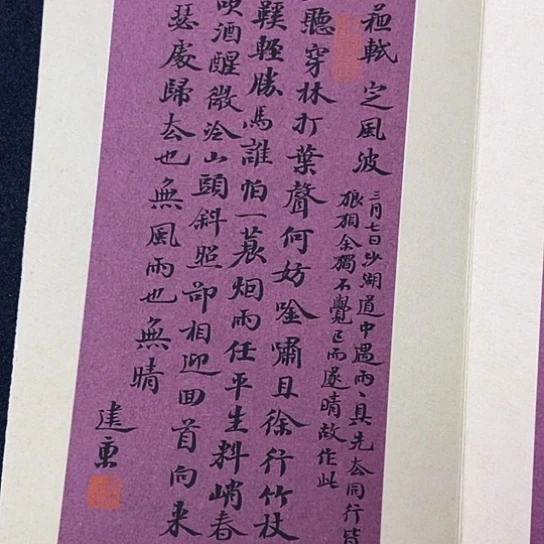 蘇軾 定風波
三月七日沙湖道中遇雨、具先去同行皆
狼狽余獨不覺已而遂晴故作此
聽穿林打葉聲何妨唫嘯且徐行竹杖
鞵輕勝馬誰怕一蓑烟雨任平生料峭春
吹酒醒微冷山頭斜照卻相迎回首向来
瑟處歸去也無風雨也無晴
建東